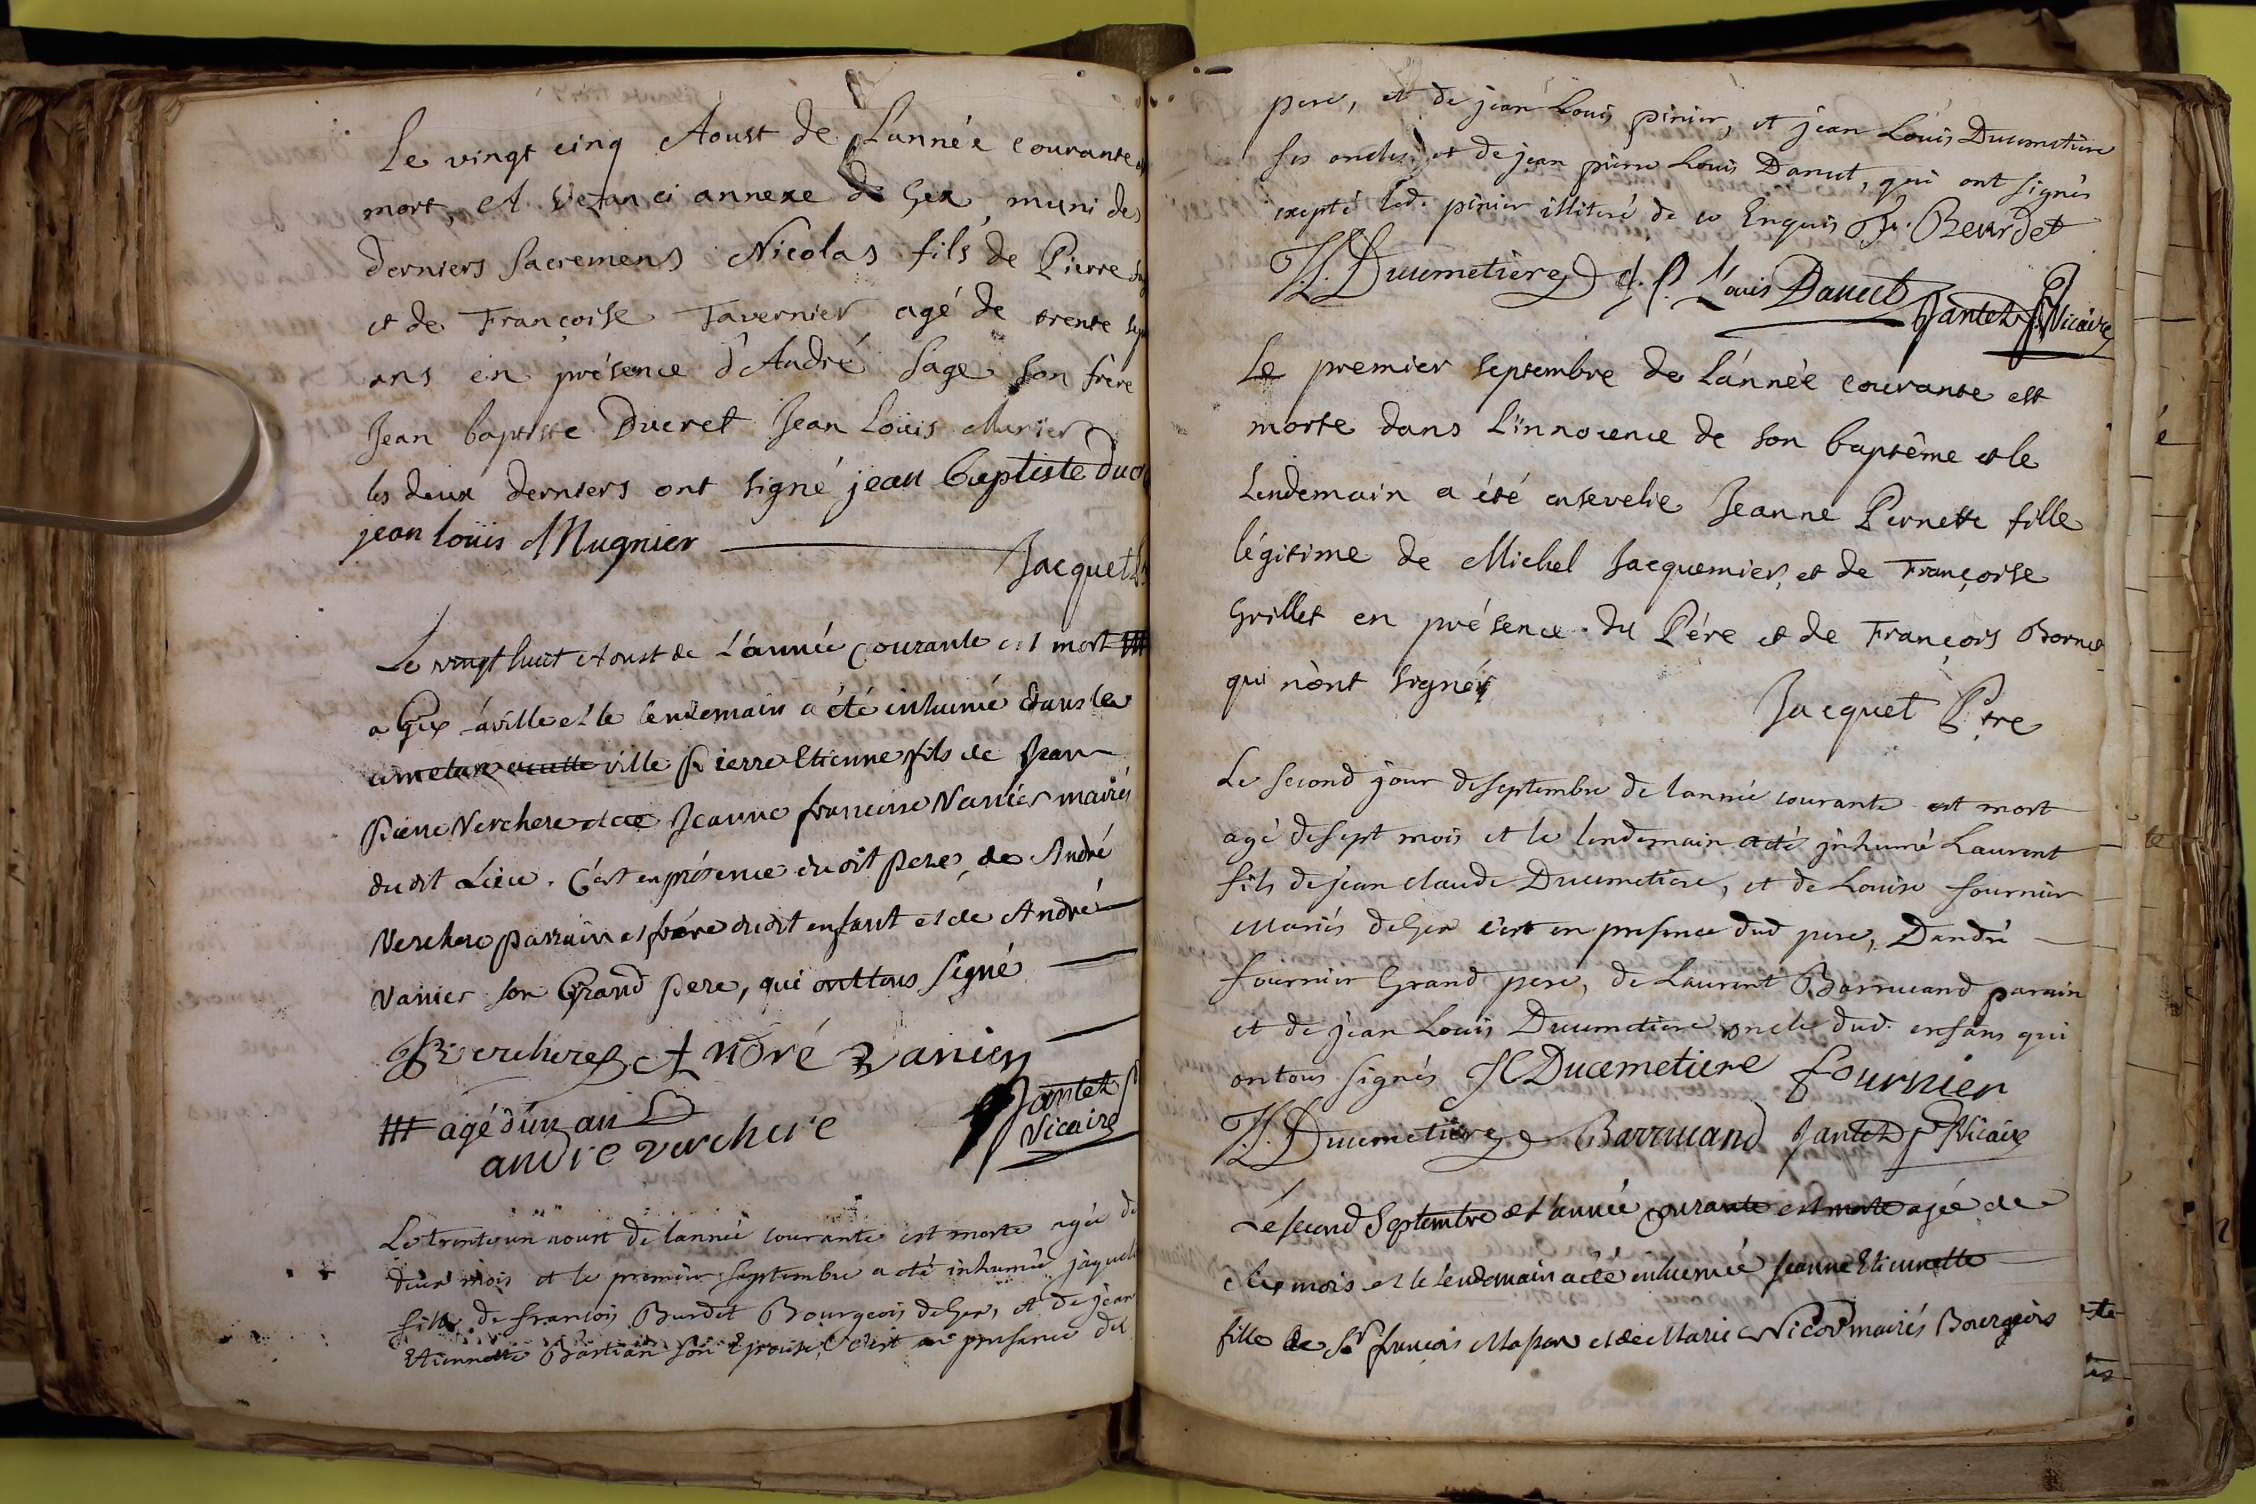 Le vingt cinq Aoust de L'année courante est
mort, et Vezanci annexe de Gex, muni des
derniers Sacremens Nicolas fils de Pierre
et de Françoise Tavernier agé de trente sept
ans en présence d'André Sage son frère
Jean baptiste Ducret Jean Loüis Munier
les deux derniers ont signé jean baptiste ducr
jean loüis Mugnier
Jacquet
Le vingt huit Aoust de L'année courante est mort ##
a Gex la ville et le lendemain a été inhumé dans le
ville Pierre Etienne fils de Jean
Pierre Verchere et de Jeanne francoise Vanier mairiés
du dit Lieu. C'est en présence du dit Pere, de André
Verchere parrain et frére du dit enfant et de André
Vanier son Grand Pere, qui ont tous signé
Verchere André Vanier
## agé d'un an
andre verchere
Jantet P
Vicaire
Le trente un aoust de lannée courante est morte agée de
deux mois et le premier Septembre a été inhumée jaquel
fille de francois Burdet Bourgeois de Gex, et de jean
Etiennette Bastian son Epouse, C'est en presence du
pere, et de jean Louis pinier, et jean Loüis Ducimetiere
ses oncles, et de jean pierre Louis Danret, qui ont signés
excepté led. pinier illiteré de ce Enquis Beurdet
JL. Ducimetiere J. P. Louis Danret Jantet P. Vicaire
Le premier septembre de L'année courante est
morte dans L'innocence de son baptême et le
Lendemain a été ensevelie Jeanne Pernette fille
légitime de Michel Jacquemier, et de Françoise
Grillet en présence du Pére et de François Bornet
qui n'ont signé
Jacquet Ptre
Le second jour de septembre de lannée courante est mort
agé de sept mois et le lendemain a été jnhumé Laurent
fils de jean claude Ducimetiere, et de Louise fournier
Mariés de Gex c'est en presence dud pere, D'andré
fournier Grand pere, de Laurent Barruand parain
et de jean Louis Ducimetiere oncle dud. enfans qui
on tous signés JC Ducemetiere fournier
JL. Ducimetiere Barruand Jantet P Vicaire
Le second Septembre de l'année courante est morte agée de
dix mois et le lendemain a été inhumée Jeanne Etiennette
fille de Sr. françois Masson et de Marie Nicod mairiés Bourgeois